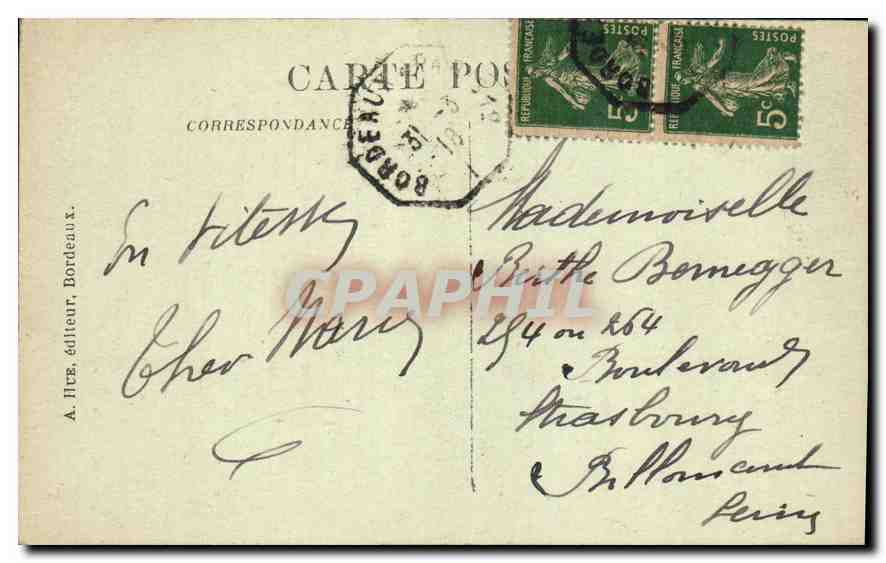 CARTE POS
CORRESPONDANCE
BORDEAUX
31
18
REPUBLIQUE FRANÇAISE
POSTES
5c
REPUBLIQUE FRANÇAISE
POSTES
5c
BORDE
A. HUE, éditeur, Bordeaux.
En vitesse
Mademoiselle
Berthe Bornegger
254 ou 264
Boulevard
Strasbourg
Billancourt
Seine
CPAPHIL